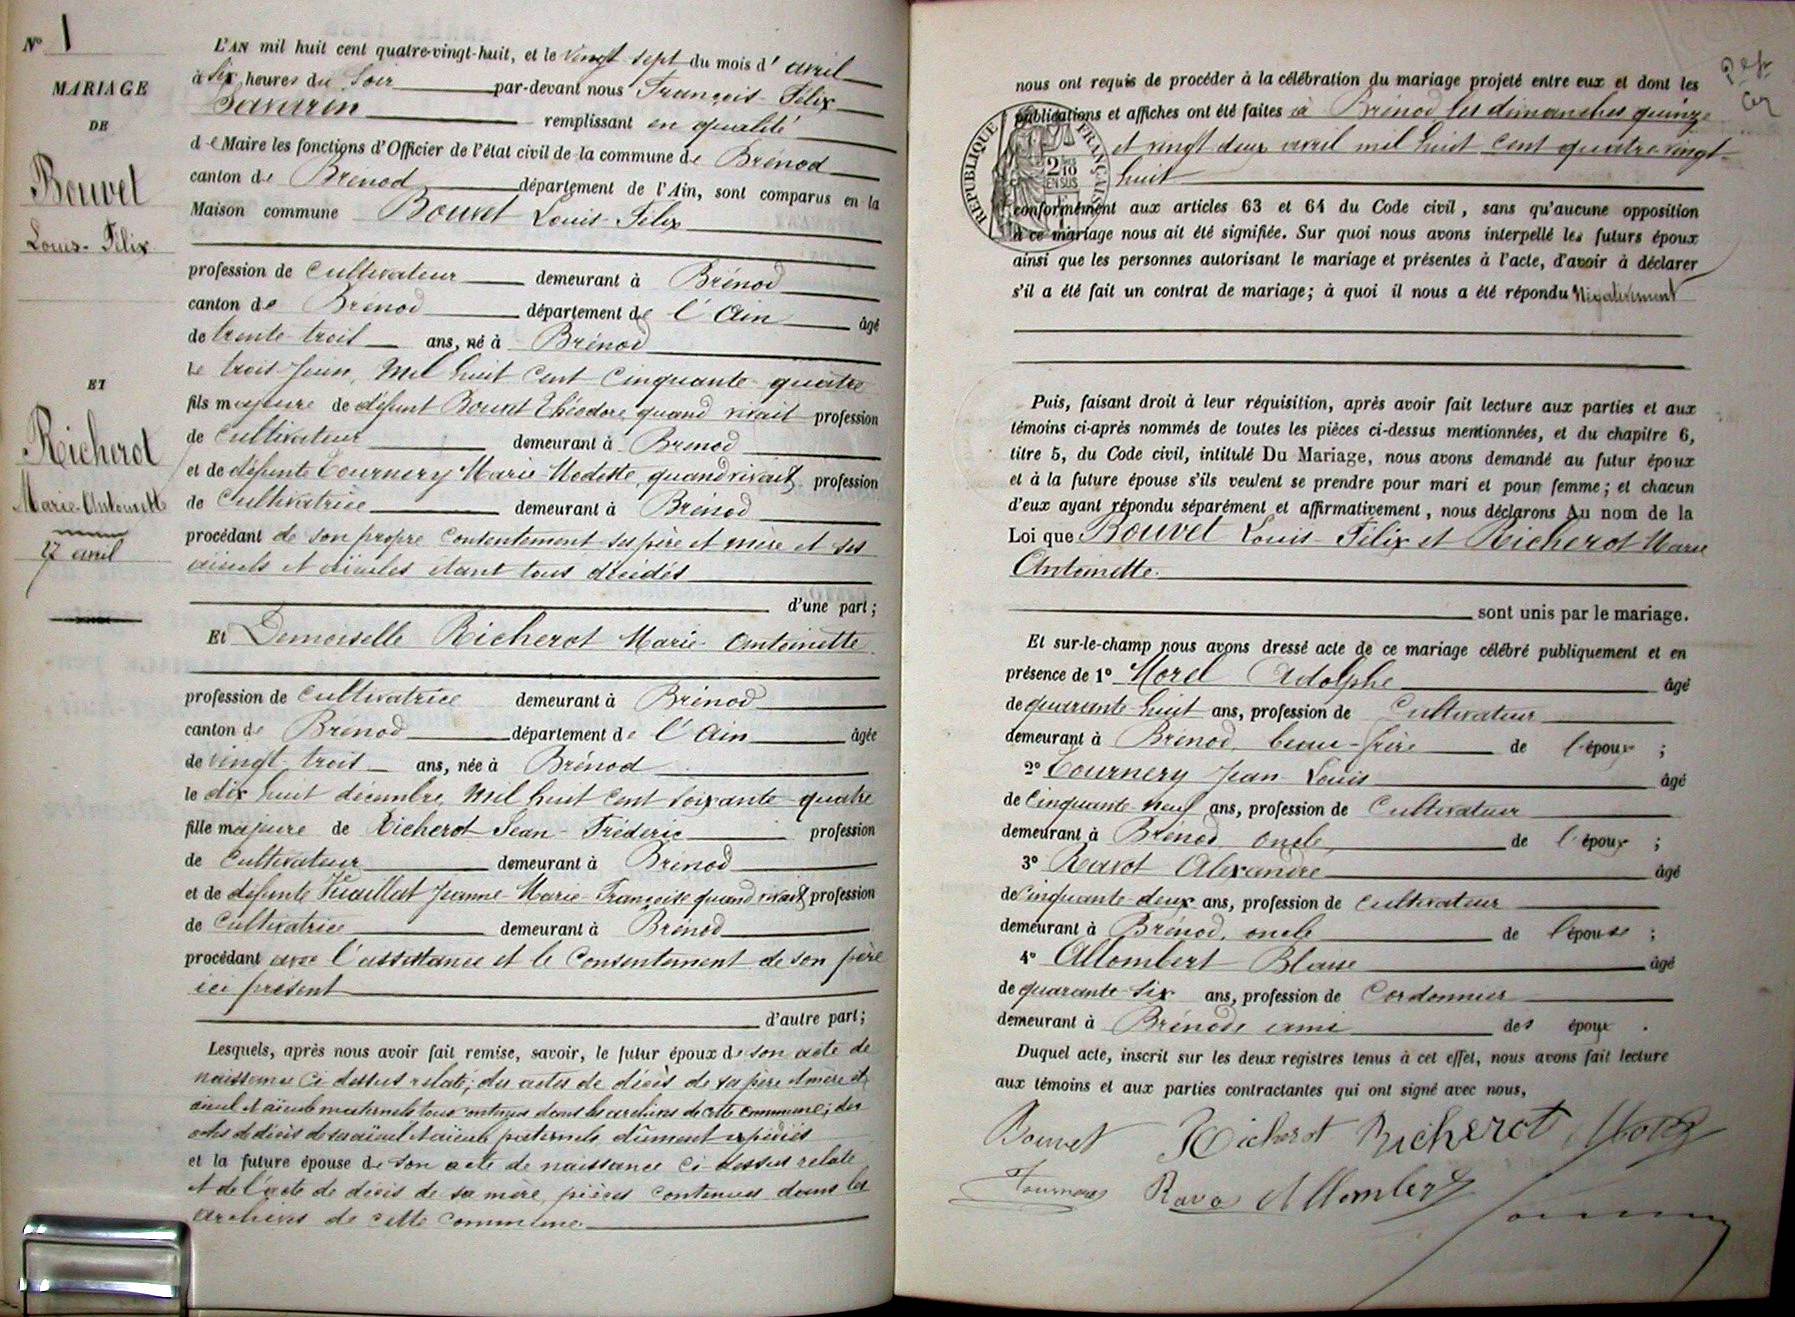 N° 1
MARIAGE
DE
Bouvet
Louis-Félix
ET
Richerot
Marie-Antoinette
27 avril
L'AN mil huit cent quatre-vingt-huit, et le vingt sept du mois d'avril
à six heures du soir par-devant nous François-Félix
Savarin remplissant en qualité
de Maire les fonctions d'Officier de l'état civil de la commune de Brénod
canton de Brenod département de l'Ain, sont comparus en la
Maison commune Bouvet Louis-Félix
profession de cultivateur demeurant à Brénod
canton de Brenod département de l'Ain âgé
de trente-trois ans, né à Brénod
le trois Juin, mil huit cent cinquante-quatre
fils majeure de défunt Bouvet Théodore, quand vivait profession
de cultivateur demeurant à Brenod
et de défunte Tournery Marie-Modeste, quand vivait, profession
de Cultivatrice demeurant à Brénod
procédant de son propre contentement ses père et mère et ses
aïeuls et aïeules étant tous décédés
d'une part;
Et Demoiselle Richerot Marie-Antoinette
profession de cultivatrice demeurant à Brénod
canton de Brénod département de l'Ain âgée
de vingt-trois ans, née à Brénod
le dix huit decembre, mil huit cent soixante-quatre
fille majeure de Richerot Jean-Fréderic profession
de Cultivateur demeurant à Brenod
et de défunte Vuaillat Jeanne-Marie-Françoise quand vivait profession
de Cultivatrice demeurant à Brénod
procédant avec l'assistance et le consentement de son père
ici présent
d'autre part;
Lesquels, après nous avoir fait remise, savoir, le futur époux de son acte de
naissance ci dessus relaté; des actes de décès de ses père et mère et
aïeul et aïeule maternels tous contenus dans les archives de cette commune; des
actes de décès de ses aïeul et aïeule paternels dûment expédiés
et la future épouse de son acte de naissance ci-dessus relaté
et de l'acte de décès de sa mère, pièces contenues dans les
archives de cette commune.
nous ont requis de procéder à la célébration du mariage projeté entre eux et dont les
publications et affiches ont été faites à Brénod les dimanches quinze
et vingt deux avril mil huit cent quatre-vingt-
huit
RÉPUBLIQUE FRANÇAISE
2/10
EN SUS
conformément aux articles 63 et 64 du Code civil, sans qu'aucune opposition
à ce mariage nous ait été signifiée. Sur quoi nous avons interpellé les futurs époux
ainsi que les personnes autorisant le mariage et présentes à l'acte, d'avoir à déclarer
s'il a été fait un contrat de mariage; à quoi il nous a été répondu Négativement
Puis, faisant droit à leur réquisition, après avoir fait lecture aux parties et aux
témoins ci-après nommés de toutes les pièces ci-dessus mentionnées, et du chapitre 6,
titre 5, du Code civil, intitulé Du Mariage, nous avons demandé au futur époux
et à la future épouse s'ils veulent se prendre pour mari et pour femme; et chacun
d'eux ayant répondu séparément et affirmativement, nous déclarons Au nom de la
Loi que Bouvet Louis-Félix et Richerot Marie
Antoinette.
sont unis par le mariage.
Et sur-le-champ nous avons dressé acte de ce mariage célébré publiquement et en
présence de 1° Morel Adolphe âgé
de quarante-huit ans, profession de Cultivateur
demeurant à Brénod, beau-frère de l'époux;
2° Tournery Jean Louis âgé
de cinquante-neuf ans, profession de Cultivateur
demeurant à Brénod, oncle, de l'époux;
3° Ravot Alexandre âgé
de cinquante-deux ans, profession de cultivateur
demeurant à Brénod, oncle de l'épouse;
4° Allombert Blaise âgé
de quarante-six ans, profession de Cordonnier
demeurant à Brénod, ami des époux.
Duquel acte, inscrit sur les deux registres tenus à cet effet, nous avons fait lecture
aux témoins et aux parties contractantes qui ont signé avec nous,
Bouvet Richerot Richerot Morel
Tournery Ravot Allombert